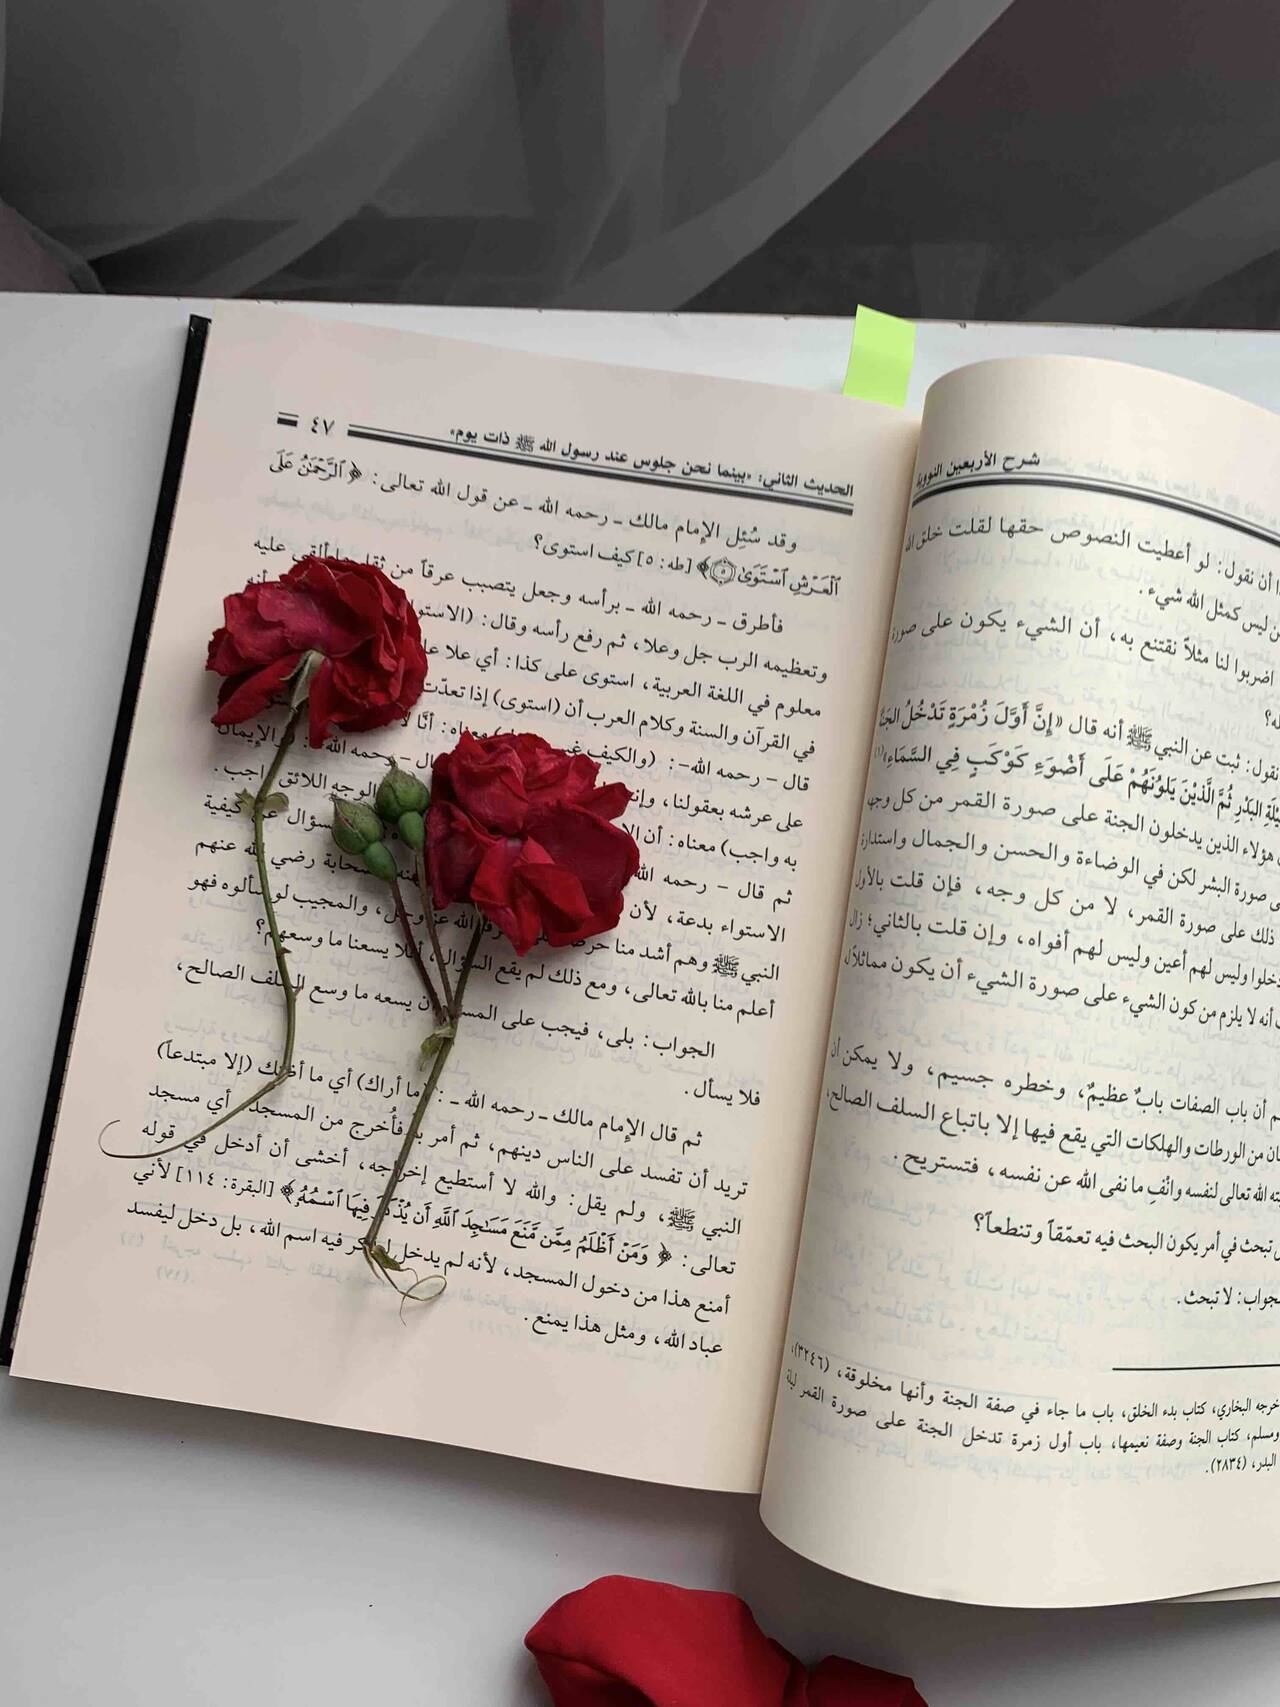 شرح الأربعين النووية
أن نقول: لو أعطيت النصوص حقها لقلت خلق الله
ليس كمثل الله شيء.
اضربوا لنا مثلاً نقتنع به، أن الشيء يكون على صورة
نقول: ثبت عن النبي ﷺ أنه قال «إِنَّ أَوَّلَ زُمْرَةٍ تَدْخُلُ الجَنَّةَ
لَيْلَةِ البَدْرِ ثُمَّ الَّذِينَ يَلُونَهُمْ عَلَى أَضْوَءِ كَوْكَبٍ فِي السَّمَاءِ»(١)
هؤلاء الذين يدخلون الجنة على صورة القمر من كل وجه
صورة البشر لكن في الوضاءة والحسن والجمال واستدارة
ذلك على صورة القمر، لا من كل وجه، فإن قلت بالأول
دخلوا وليس لهم أعين وليس لهم أفواه، وإن قلت بالثاني؛ زال
أنه لا يلزم من كون الشيء على صورة الشيء أن يكون مماثلاً له
أن باب الصفات بابٌ عظيمٌ، وخطره جسيم، ولا يمكن أن
من الورطات والهلكات التي يقع فيها إلا باتباع السلف الصالح،
الله تعالى لنفسه وانْفِ ما نفى الله عن نفسه، فتستريح.
تبحث في أمر يكون البحث فيه تعمّقاً وتنطعاً؟
الجواب: لا تبحث.
البخاري، كتاب بدء الخلق، باب ما جاء في صفة الجنة وأنها مخلوقة، (٣٢٤٦)،
ومسلم، كتاب الجنة وصفة نعيمها، باب أول زمرة تدخل الجنة على صورة القمر ليلة
البدر، (٢٨٣٤).
الحديث الثاني: «بينما نحن جلوس عند رسول الله ﷺ ذات يوم» ٤٧
وقد سُئِل الإمام مالك ـ رحمه الله ـ عن قول الله تعالى: ﴿ٱلرَّحۡمَٰنُ عَلَى
ٱلۡعَرۡشِ ٱسۡتَوَىٰ ٥﴾ [طه: ٥] كيف استوى؟
فأطرق ـ رحمه الله ـ برأسه وجعل يتصبب عرقاً من ثقل ما ألقي عليه
وتعظيمه الرب جل وعلا، ثم رفع رأسه وقال: (الاستواء
معلوم في اللغة العربية، استوى على كذا: أي علا
في القرآن والسنة وكلام العرب أن (استوى) إذا تعدّت
قال - رحمه الله-: (والكيف غير معناه: أنَّا لا
على عرشه بعقولنا، قال - رحمه الله -: (والإيمان
به واجب) معناه: أن الوجه اللائق واجب.
ثم قال - رحمه الله السؤال عن كيفية
الاستواء بدعة، لأن الصحابة رضي الله عنهم
النبي ﷺ وهم أشد منا الله عز وجل، والمجيب لو سألوه فهو
أعلم منا بالله تعالى، ومع ذلك لم يقع السؤال، أفلا يسعنا ما وسعهم؟
الجواب: بلى، فيجب على أن يسعه ما وسع السلف الصالح،
فلا يسأل.
ثم قال الإمام مالك ـ رحمه الله ـ: (ما أراك) أي ما أظنك (إلا مبتدعاً)
تريد أن تفسد على الناس دينهم، ثم أمر به فأُخرج من المسجد، أي مسجد
النبي ﷺ، ولم يقل: والله لا أستطيع إخراجه، أخشى أن أدخل في قوله
تعالى: ﴿وَمَنۡ أَظۡلَمُ مِمَّن مَّنَعَ مَسَٰجِدَ ٱللَّهِ أَن يُذۡكَرَ فِيهَا ٱسۡمُهُۥ﴾ [البقرة: ١١٤] لأني
أمنع هذا من دخول المسجد، لأنه لم يدخل فيه اسم الله، بل دخل ليفسد
عباد الله، ومثل هذا يمنع.